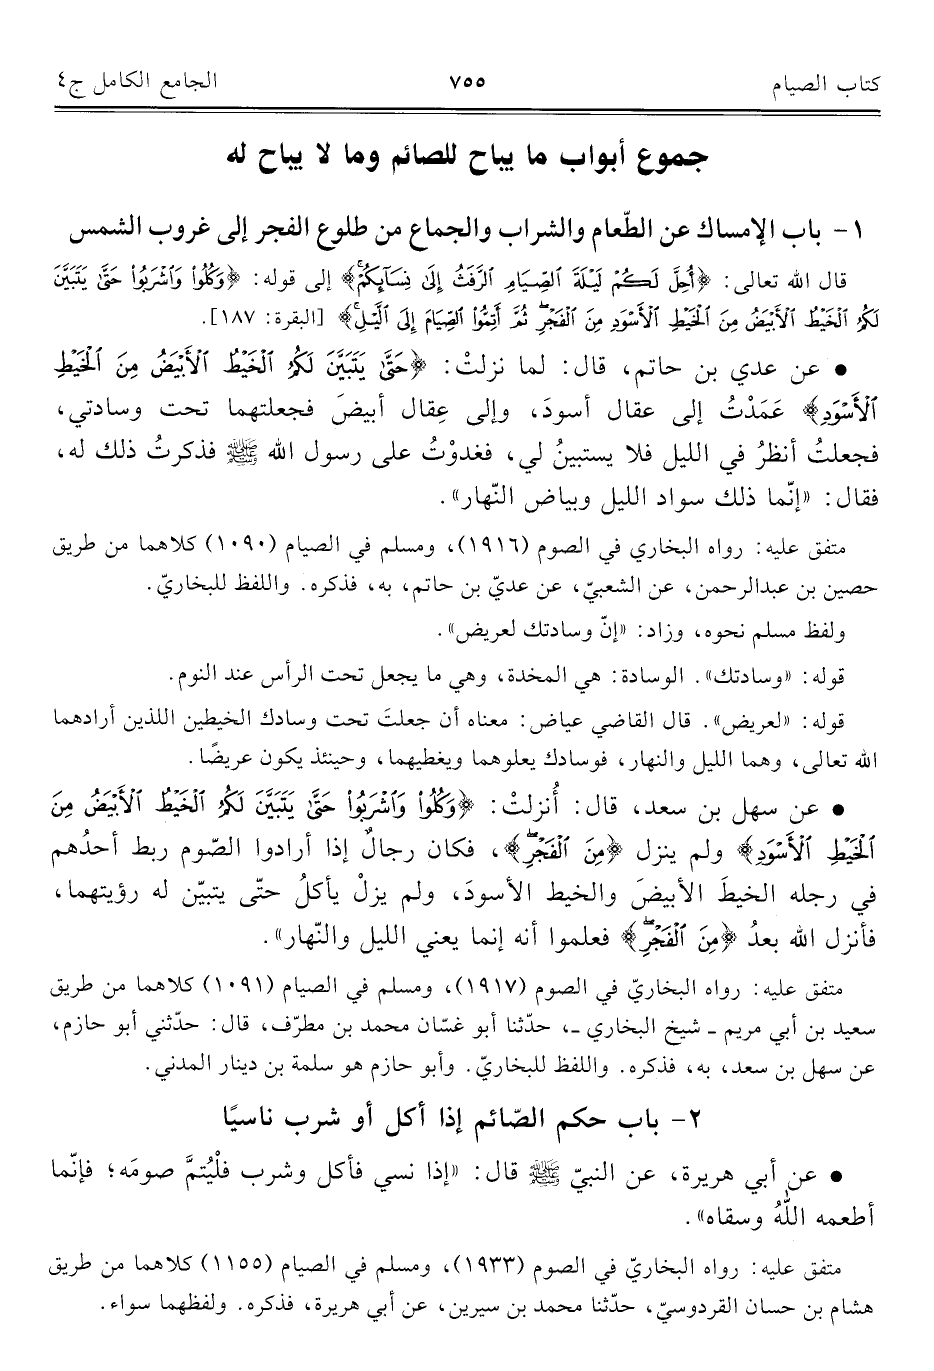 كتاب الصيام ٧٥٥ الجامع الكامل ج٤
جموع أبواب ما يباح للصائم وما لا يباح له
١- باب الإمساك عن الطّعام والشراب والجماع من طلوع الفجر إلى غروب الشمس
قال الله تعالى: ﴿أُحِلَّ لَكُمْ لَيْلَةَ ٱلصِّيَامِ ٱلرَّفَثُ إِلَىٰ نِسَآئِكُمْ﴾ إلى قوله: ﴿وَكُلُوا۟ وَٱشْرَبُوا۟ حَتَّىٰ يَتَبَيَّنَ
لَكُمُ ٱلْخَيْطُ ٱلْأَبْيَضُ مِنَ ٱلْخَيْطِ ٱلْأَسْوَدِ مِنَ ٱلْفَجْرِ ۖ ثُمَّ أَتِمُّوا۟ ٱلصِّيَامَ إِلَى ٱلَّيْلِ ۚ﴾ [البقرة: ١٨٧].
• عن عدي بن حاتم، قال: لما نزلتْ: ﴿حَتَّىٰ يَتَبَيَّنَ لَكُمُ ٱلْخَيْطُ ٱلْأَبْيَضُ مِنَ ٱلْخَيْطِ
ٱلْأَسْوَدِ﴾ عَمَدْتُ إلى عقال أسودَ، وإلى عِقال أبيضَ فجعلتهما تحت وسادتي،
فجعلتُ أنظرُ في الليل فلا يستبينُ لي، فغدوْتُ على رسول الله ﷺ فذكرتُ ذلك له،
فقال: «إنّما ذلك سواد الليل وبياض النّهار».
متفق عليه: رواه البخاري في الصوم (١٩١٦)، ومسلم في الصيام (١٠٩٠) كلاهما من طريق
حصين بن عبدالرحمن، عن الشعبيّ، عن عديّ بن حاتم، به، فذكره. واللفظ للبخاريّ.
ولفظ مسلم نحوه، وزاد: «إنّ وسادتك لعريض».
قوله: «وسادتك». الوسادة: هي المخدة، وهي ما يجعل تحت الرأس عند النوم.
قوله: «لعريض». قال القاضي عياض: معناه أن جعلتَ تحت وسادك الخيطين اللذين أرادهما
الله تعالى، وهما الليل والنهار، فوسادك يعلوهما ويغطيهما، وحينئذ يكون عريضًا.
• عن سهل بن سعد، قال: أُنزلتْ: ﴿وَكُلُوا۟ وَٱشْرَبُوا۟ حَتَّىٰ يَتَبَيَّنَ لَكُمُ ٱلْخَيْطُ ٱلْأَبْيَضُ مِنَ
ٱلْخَيْطِ ٱلْأَسْوَدِ﴾ ولم ينزل ﴿مِنَ ٱلْفَجْرِ ۖ﴾، فكان رجالٌ إذا أرادوا الصّوم ربط أحدُهم
في رجله الخيطَ الأبيضَ والخيط الأسودَ، ولم يزلْ يأكلُ حتّى يتبيّن له رؤيتهما،
فأنزل الله بعدُ ﴿مِنَ ٱلْفَجْرِ ۖ﴾ فعلموا أنه إنما يعني الليل والنّهار».
متفق عليه: رواه البخاريّ في الصوم (١٩١٧)، ومسلم في الصيام (١٠٩١) كلاهما من طريق
سعيد بن أبي مريم ـ شيخ البخاري ـ، حدّثنا أبو غسّان محمد بن مطرّف، قال: حدّثني أبو حازم،
عن سهل بن سعد، به، فذكره. واللفظ للبخاريّ. وأبو حازم هو سلمة بن دينار المدني.
٢- باب حكم الصّائم إذا أكل أو شرب ناسيًا
• عن أبي هريرة، عن النبيّ ﷺ قال: «إذا نسي فأكل وشرب فلْيُتمَّ صومَه؛ فإنّما
أطعمه اللهُ وسقاه».
متفق عليه: رواه البخاريّ في الصوم (١٩٣٣)، ومسلم في الصيام (١١٥٥) كلاهما من طريق
هشام بن حسان القردوسيّ، حدّثنا محمد بن سيرين، عن أبي هريرة، فذكره. ولفظهما سواء.